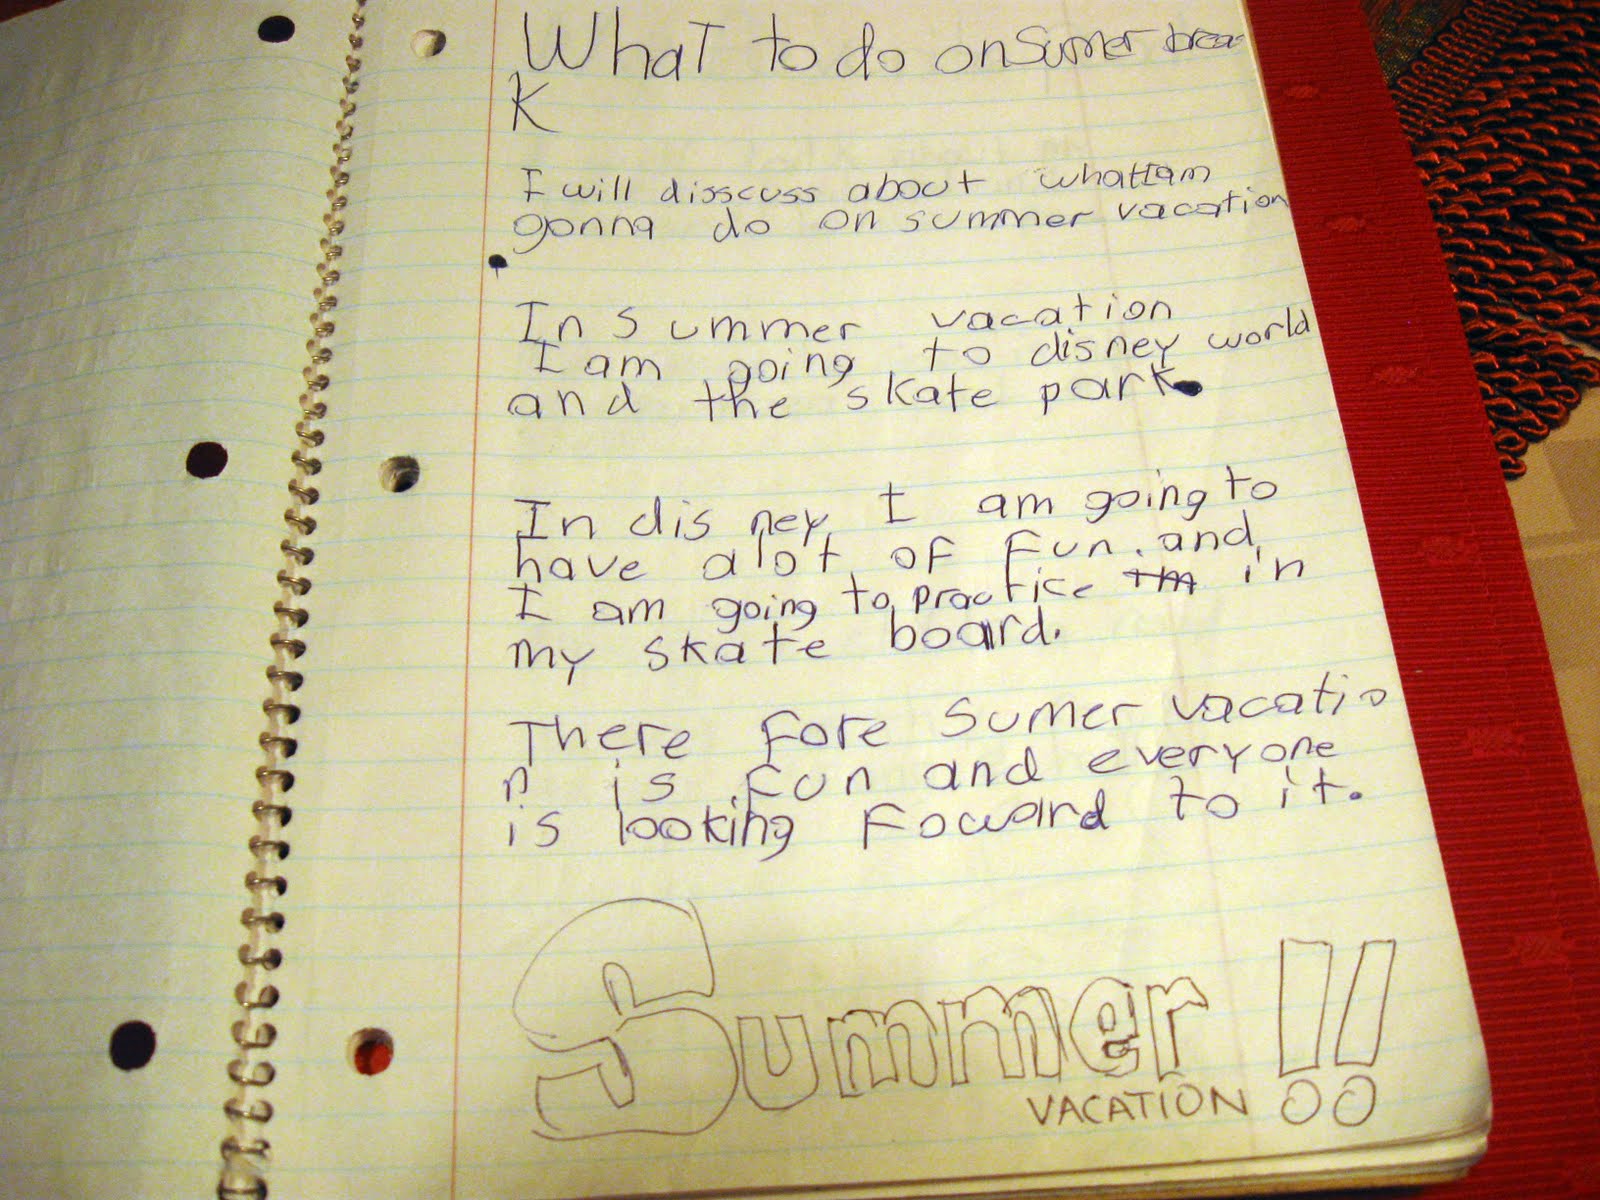 What to do on sumer brea
K
I will disscuss about what I am
gonna do on summer vacation
.
In summer vacation
I am going to disney world
and the skate park.
In dis ney I am going to
have alot of fun. and
I am going to practice in
my skate board.
There fore sumer vacatio
n is fun and everyone
is looking foward to it.
Summer!!
VACATION